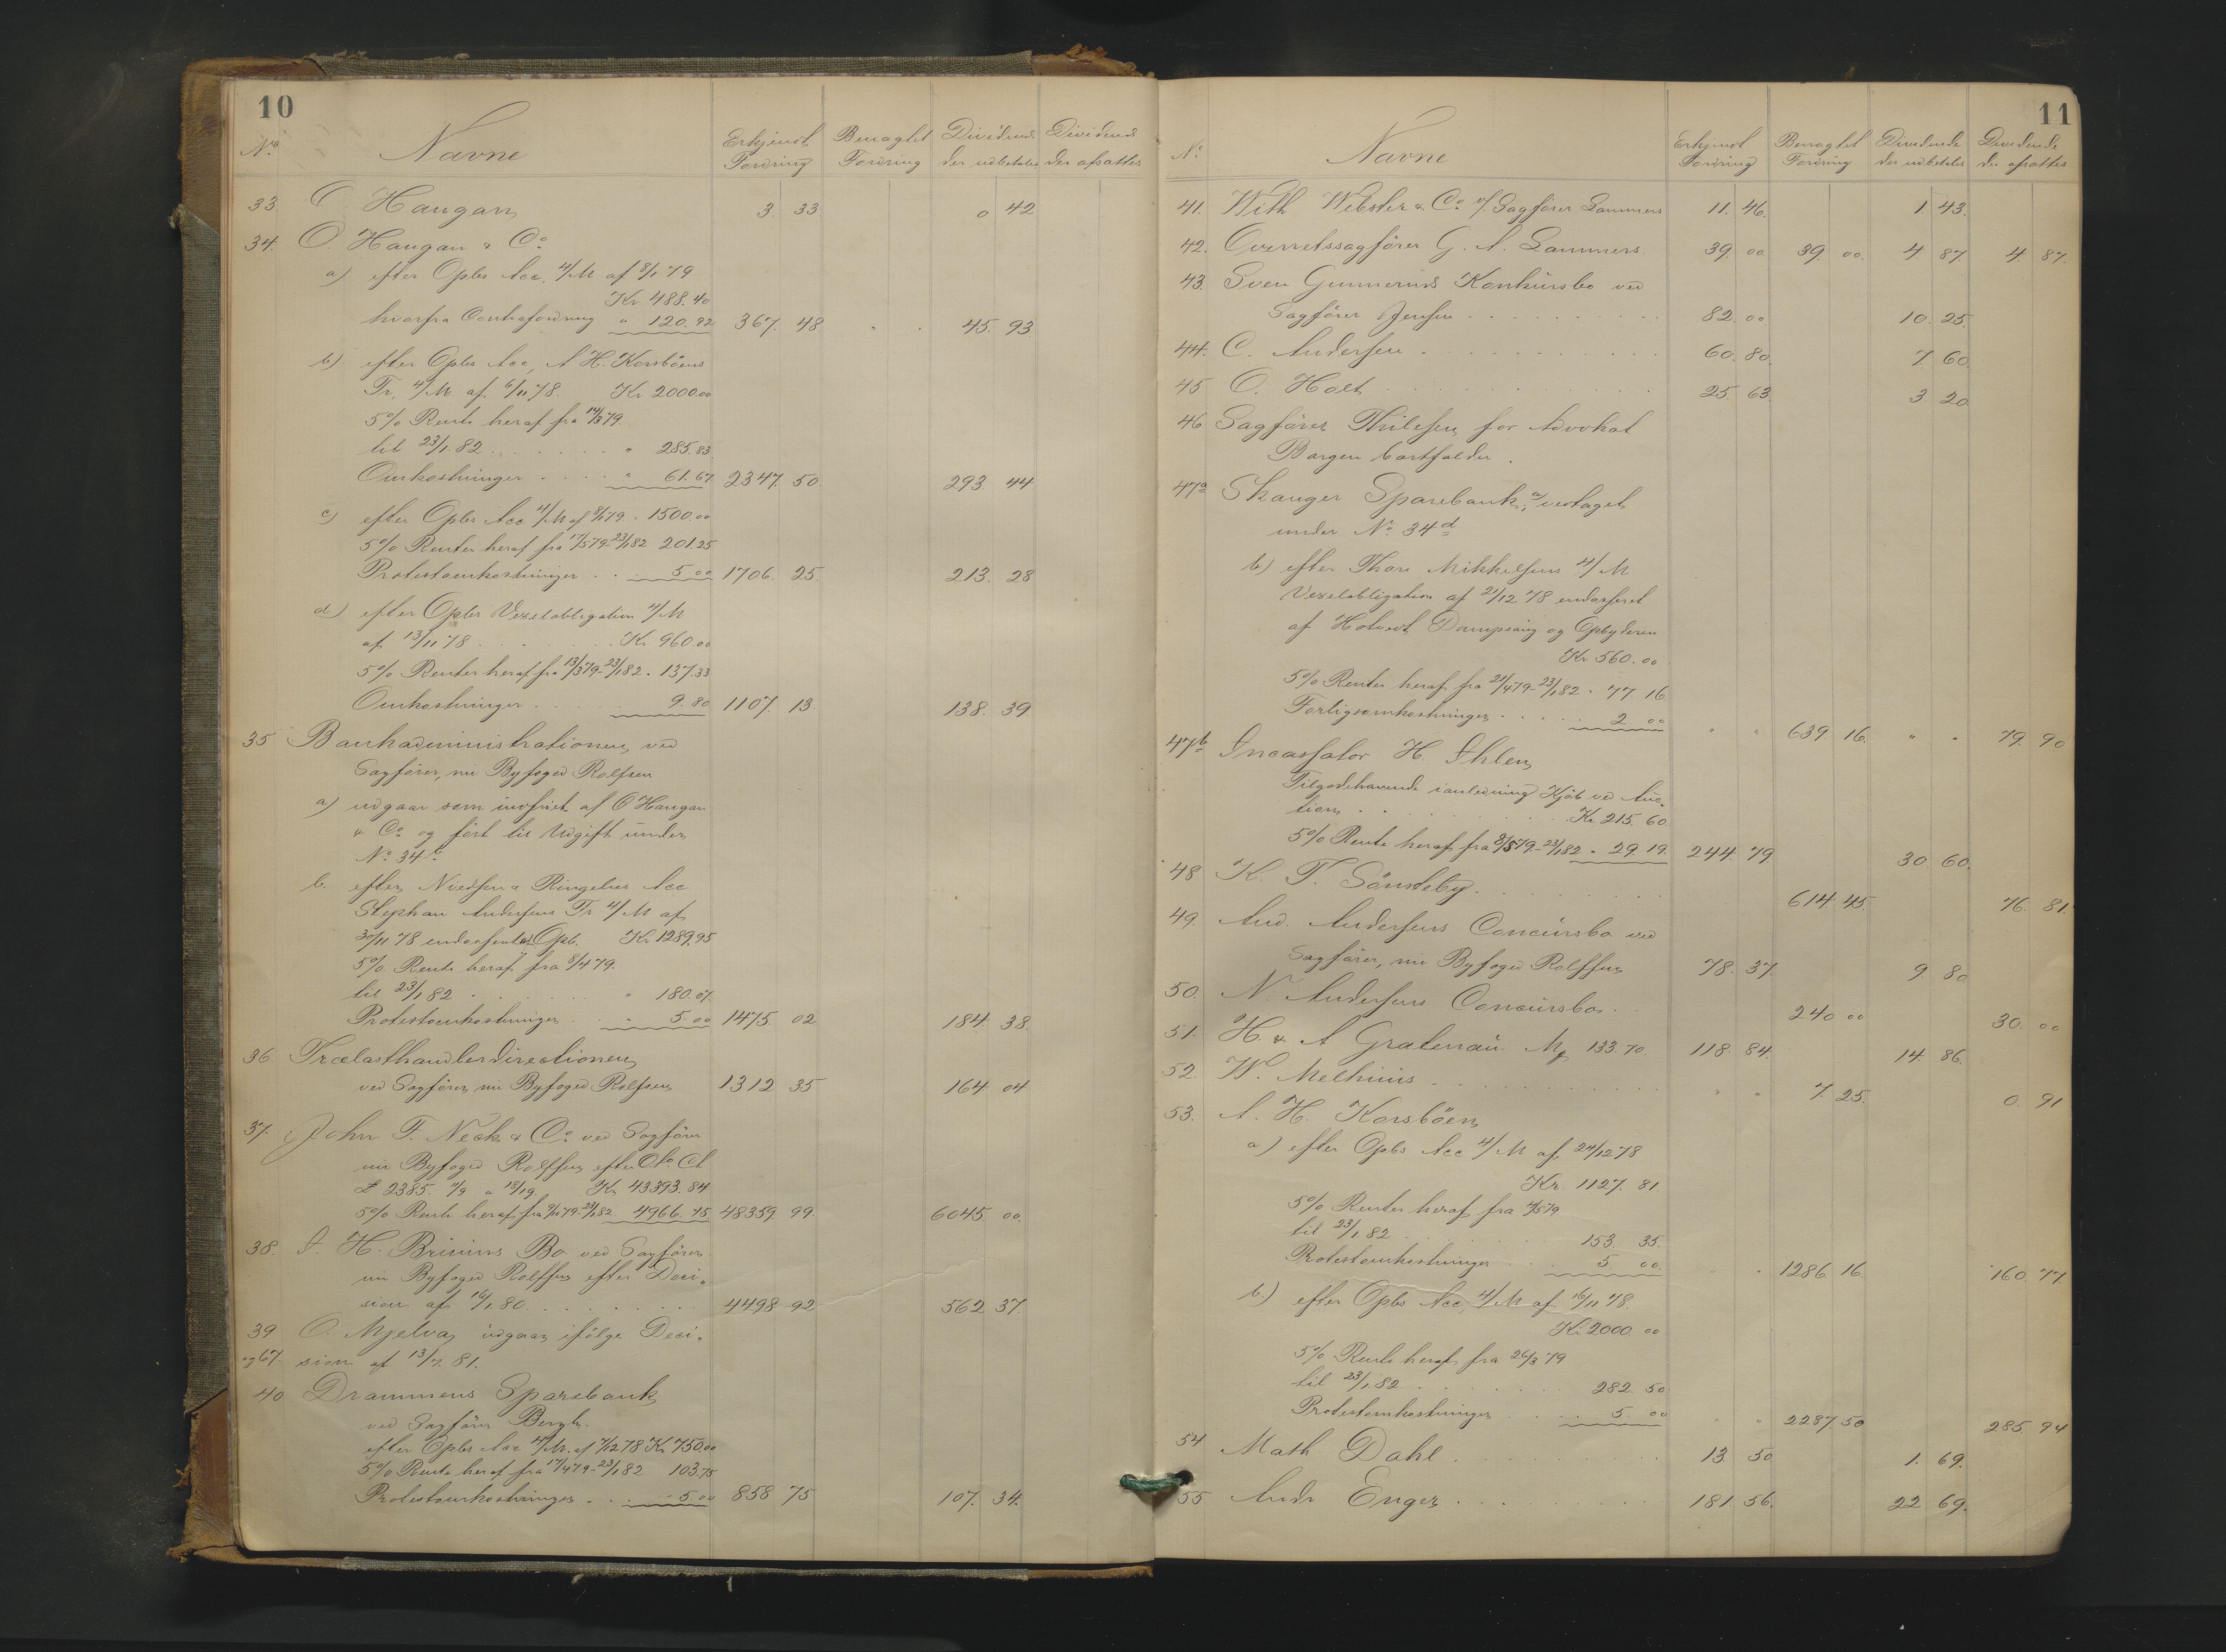 10
No Navne Erkjendt Fordring Benægtet Fordring Dividende der udbetales Dividende der afsættes
33. O. Haugan 3. 33 0 42
34. O. Haugan & Co
a) efter Opbs Acc. 4/M af 8/1 79
Kr 488.40
hvorfra Contrafordring " 120.92 367. 48 " " 45. 93
b) efter Opbs Acc, A H. Korsböens
Tr, 4/M af 6/11 78. Kr 2000.00
5% Rente heraf fra 14/3 79
til 23/1 82 " 285.83
Omkostninger " 61.67 2347. 50 293 44
c) efter Opbs Acc 4/M af 8/1 79 " 1500.00
5% Renter heraf fra 17/5 79-23/1 82 201.25
Protestomkostninger 5.00 1706. 25 213. 28
d) efter Opbs Vexelobligation 4/M
af 13/11 78 Kr 960.00
5% Renter heraf fra 13/3 79-23/1 82 " 137.33
Omkostninger 9.80 1107. 13 138. 39
35 Bankadministrationen ved
Sagfører, nu Byfoged Rolfsen
a) udgaar som indfriet af O Haugan
& Co og ført til Udgift under
No 34 b
b. efter Nielsen & Ringelies Acc
Stephan Andersens Tr 4/M af
30/11 78 endosseret Opb. Kr 1289.95
5% Rente heraf fra 8/4 79.
til 23/1 82 " 180.07
Protestomkostninger " 5.00 1475. 02 184. 38.
36. Trælasthandlerdirectionen
ved Sagfører nu Byfoged Rolfsen 1312 35 164 04
37. John F. Neck & Co ved Sagfører
nu Byfoged Rolffsen efter Cto Ct
£ 2385. 7/9 a 18/19 Kr 43393.84
5% Rente heraf fra 79-23/1 82 4966.15 48359. 99 6045. 00.
38. I. H. Briuns Bo ved Sagfører
nu Byfoged Rolffsen efter Deci-
sion af 16/1 80 4498 92 562 37.
39 O. Mjelva udgaar ifølge Deci-
og 67. sion af 13/7. 81.
40 Drammens Sparebank
ved Sagfører Bergh.
efter Opbs Acc 4/M. af 7/12 78 Kr 750.00
5% Rente heraf fra 17/4 79-23/1 82 103.75
Protestomkostninger 5.00 858 75 107. 34.
11
No Navne Erkjendt Fordring Benægtet Fordring Dividende der udbetales Dividende der afsættes
41. With Webster & Co v/ Sagfører Lammers 11. 46. 1. 43.
42. Overretssagfører G. A. Lammers 39. 00 39. 00. 4 87 4. 87.
43. Sven Gunneruds Konkursbo ved
Sagfører Jensen 82. 00 10. 25.
44. C. Andersen 60. 80. 7 60.
45 O. Holt 25. 63. 3 20
46 Sagfører Thilesen for Advokat
Bargen bortfalder.
47a Skauger Sparebank; a/ vedtaget
under No 34 d
b) efter Thore Mikkelsens 4/M
Vexelobligation af 21/12 78 endosseret
af Holtvedt Dampsaug og Opbyderen
Kr 560.00
5% Renter heraf fra 21/4 79-23/1 82 " 77 16
Forligsomkostninger 2 00 " " 639. 16. " " 79. 90
47b Incassator H. Ihlen
Tilgodehavende i anledning Kjöb ved Auc-
tion Kr 215. 60
5% Rente heraf fra 8/5 79-23/1 82 " 29 19. 244. 79 30. 60.
48 K. T. Sönsteby 614. 45. 76. 81.
49. And. Andersens Concursbo ved
Sagfører, nu Byfoged Rolffsen 78. 37. 9. 80
50. N. Andersens Concursbo. 240 00 30. 00
51. H. & A Gratenau Mk 133.70. 118. 84. 14. 86.
52. W. Melhuus " " 7. 25. 0. 91
53. A. H. Korsböen
a) efter Opbs Acc 4/M af 24/12 78
Kr. 1127. 81
5% Renter heraf fra 4/5 79
til 23/1 82 153 35.
Protestomkostninger 5. 00 " 1286 16 160. 77
b.) efter Opbs Acc, 4/M af 16/11 78.
Kr 2000. 00
5% Rente heraf fra 26/3 79
til 23/1 82 282. 50
Protestomkostninger 5 00 " " 2287. 50 285. 94
54 Math Dahl 13 50 1. 69.
55 Andr Enger 181 56. 22 69.